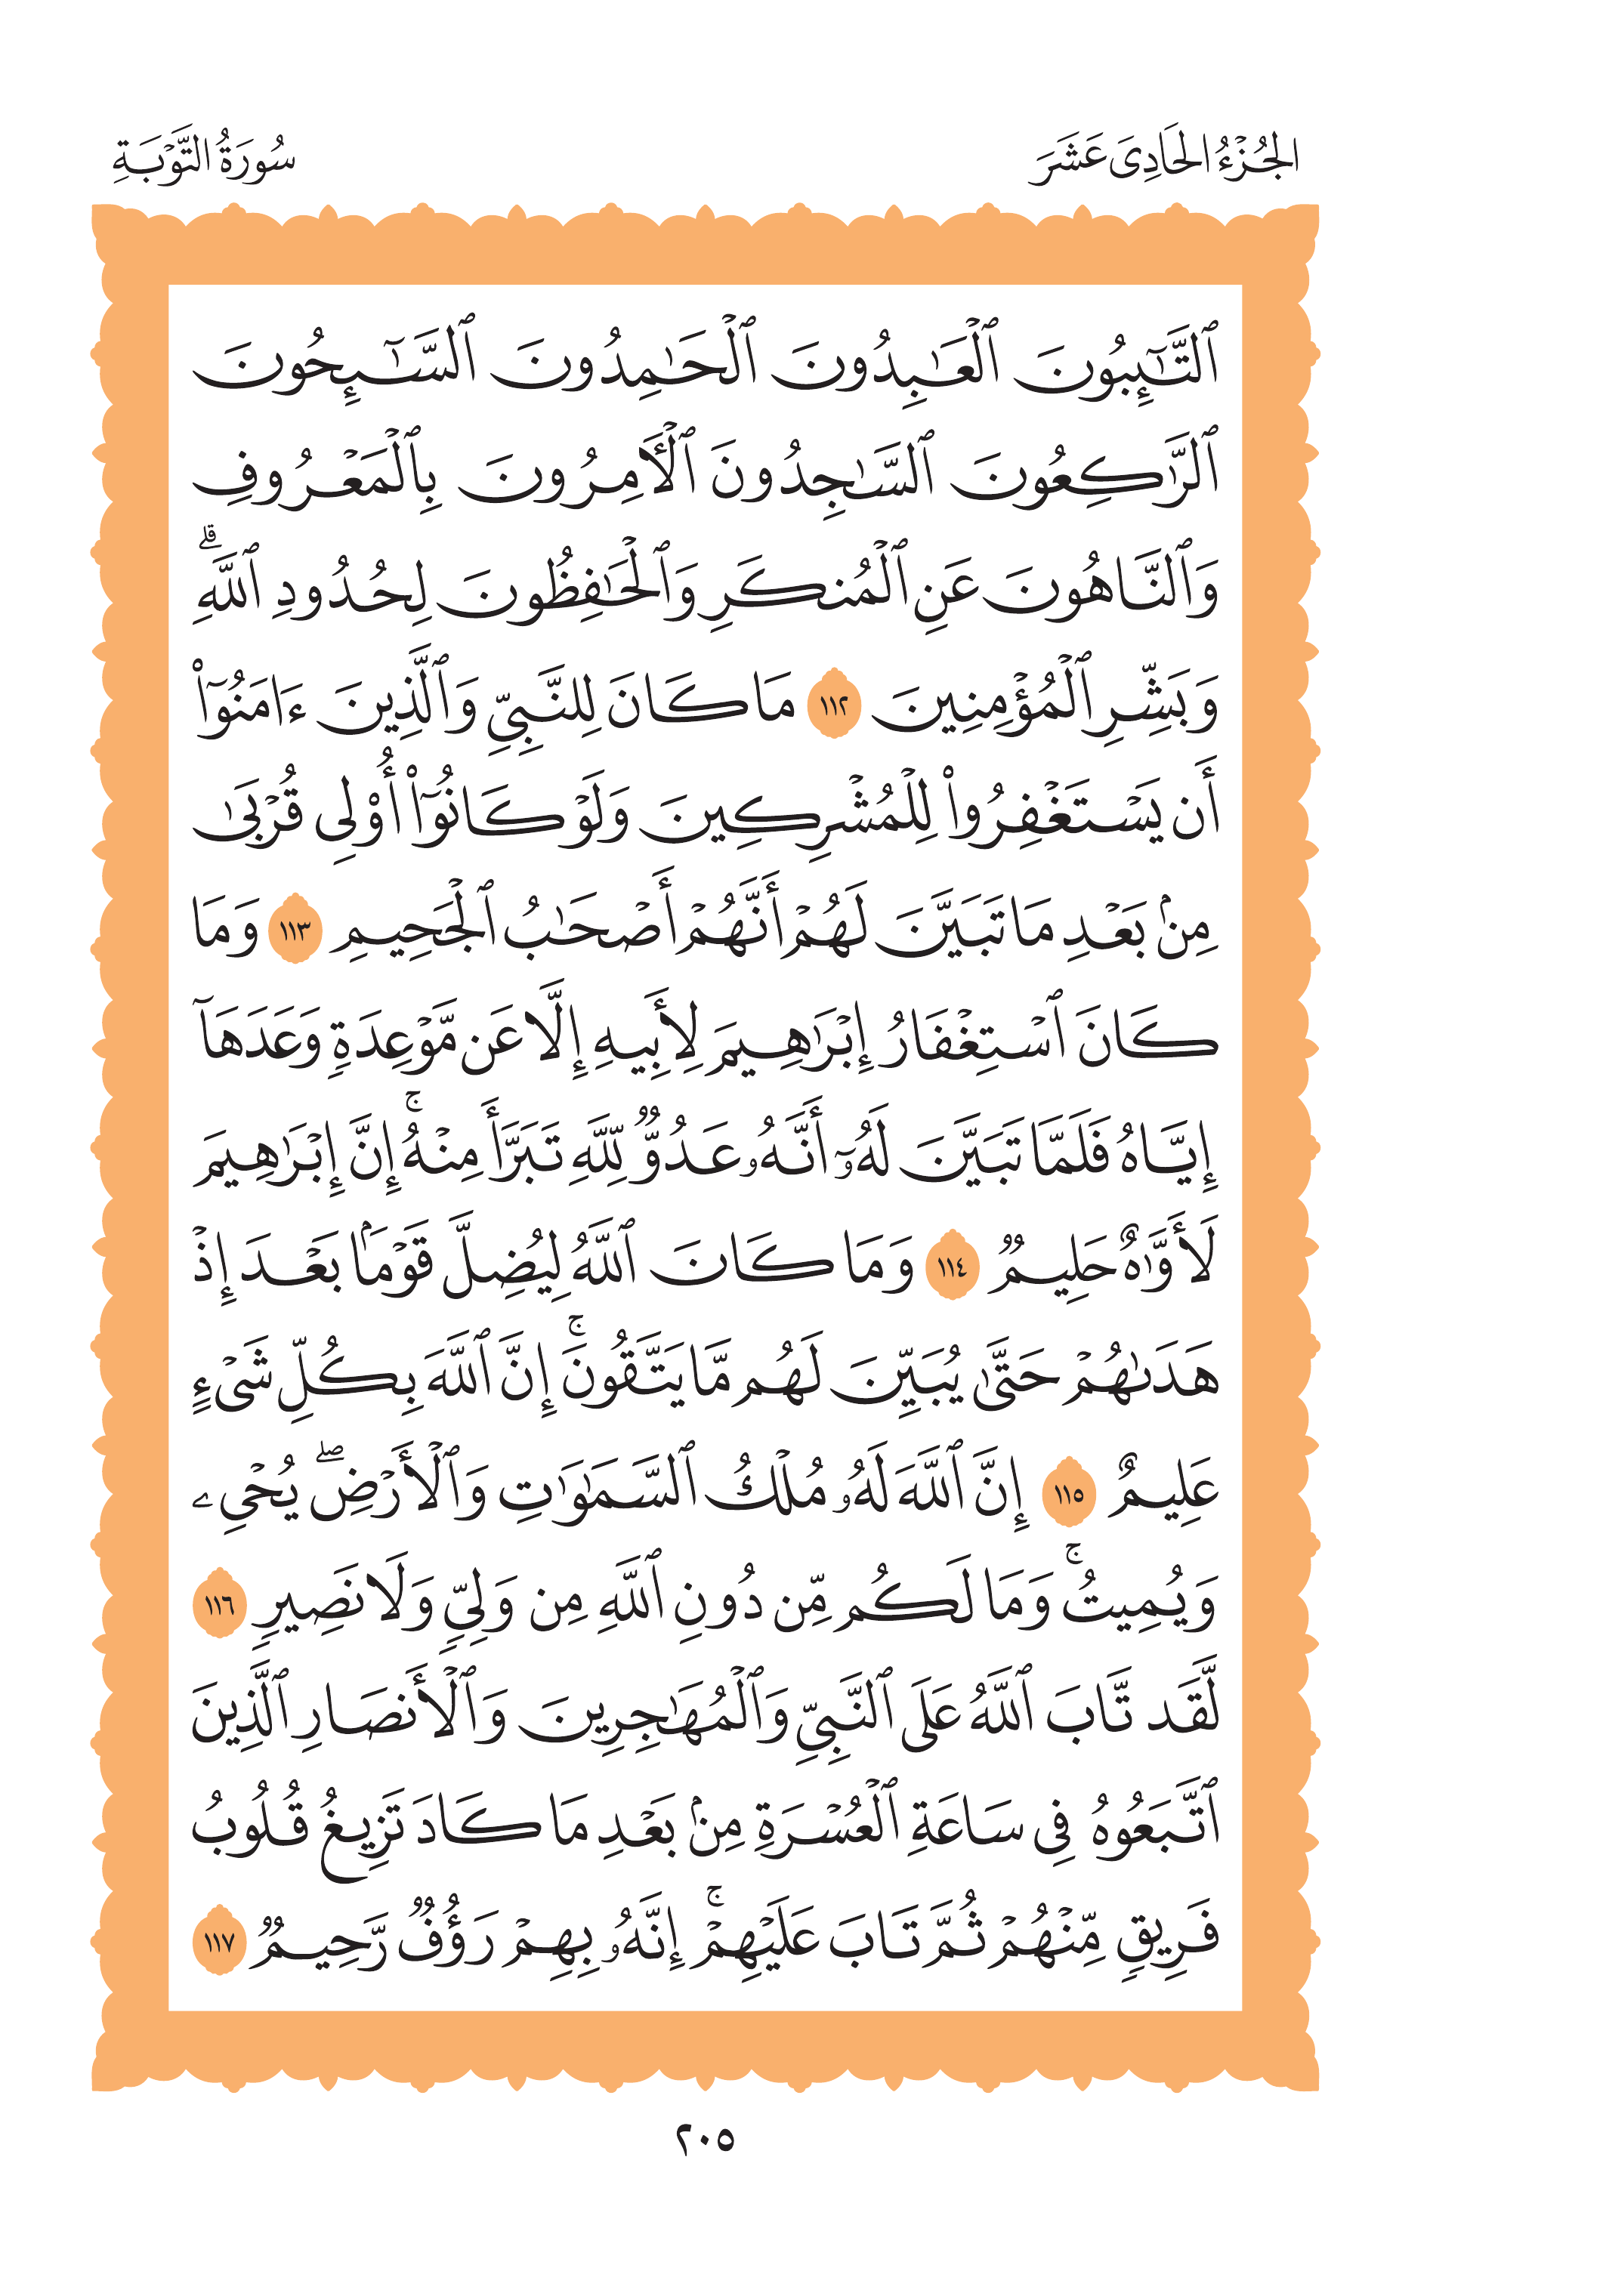 الجُزْءُ الحَادِى عَشَرَ
سُورَةُ التَّوْبَةِ
ٱلتَّٰٓئِبُونَ ٱلْعَٰبِدُونَ ٱلْحَٰمِدُونَ ٱلسَّٰٓئِحُونَ
ٱلرَّٰكِعُونَ ٱلسَّٰجِدُونَ ٱلْأَمِرُونَ بِٱلْمَعْرُوفِ
وَٱلنَّاهُونَ عَنِ ٱلْمُنكَرِ وَٱلْحَٰفِظُونَ لِحُدُودِ ٱللَّهِۗ
وَبَشِّرِ ٱلْمُؤْمِنِينَ ١١٢ مَا كَانَ لِلنَّبِىِّ وَٱلَّذِينَ ءَامَنُوٓا۟
أَن يَسْتَغْفِرُوا۟ لِلْمُشْرِكِينَ وَلَوْ كَانُوٓا۟ أُو۟لِى قُرْبَىٰ
مِنۢ بَعْدِ مَا تَبَيَّنَ لَهُمْ أَنَّهُمْ أَصْحَٰبُ ٱلْجَحِيمِ ١١٣ وَمَا
كَانَ ٱسْتِغْفَارُ إِبْرَٰهِيمَ لِأَبِيهِ إِلَّا عَن مَّوْعِدَةٍ وَعَدَهَآ
إِيَّاهُ فَلَمَّا تَبَيَّنَ لَهُۥٓ أَنَّهُۥ عَدُوٌّ لِّلَّهِ تَبَرَّأَ مِنْهُۚ إِنَّ إِبْرَٰهِيمَ
لَأَوَّٰهٌ حَلِيمٌ ١١٤ وَمَا كَانَ ٱللَّهُ لِيُضِلَّ قَوْمَۢا بَعْدَ إِذْ
هَدَىٰهُمْ حَتَّىٰ يُبَيِّنَ لَهُم مَّا يَتَّقُونَۚ إِنَّ ٱللَّهَ بِكُلِّ شَىْءٍ
عَلِيمٌ ١١٥ إِنَّ ٱللَّهَ لَهُۥ مُلْكُ ٱلسَّمَٰوَٰتِ وَٱلْأَرْضِۖ يُحْىِۦ
وَيُمِيتُۚ وَمَا لَكُم مِّن دُونِ ٱللَّهِ مِن وَلِىٍّ وَلَا نَصِيرٍ ١١٦
لَّقَد تَّابَ ٱللَّهُ عَلَى ٱلنَّبِىِّ وَٱلْمُهَٰجِرِينَ وَٱلْأَنصَارِ ٱلَّذِينَ
ٱتَّبَعُوهُ فِى سَاعَةِ ٱلْعُسْرَةِ مِنۢ بَعْدِ مَا كَادَ تَزِيغُ قُلُوبُ
فَرِيقٍ مِّنْهُمْ ثُمَّ تَابَ عَلَيْهِمْۚ إِنَّهُۥ بِهِمْ رَءُوفٌ رَّحِيمٌ ١١٧
٢٠٥